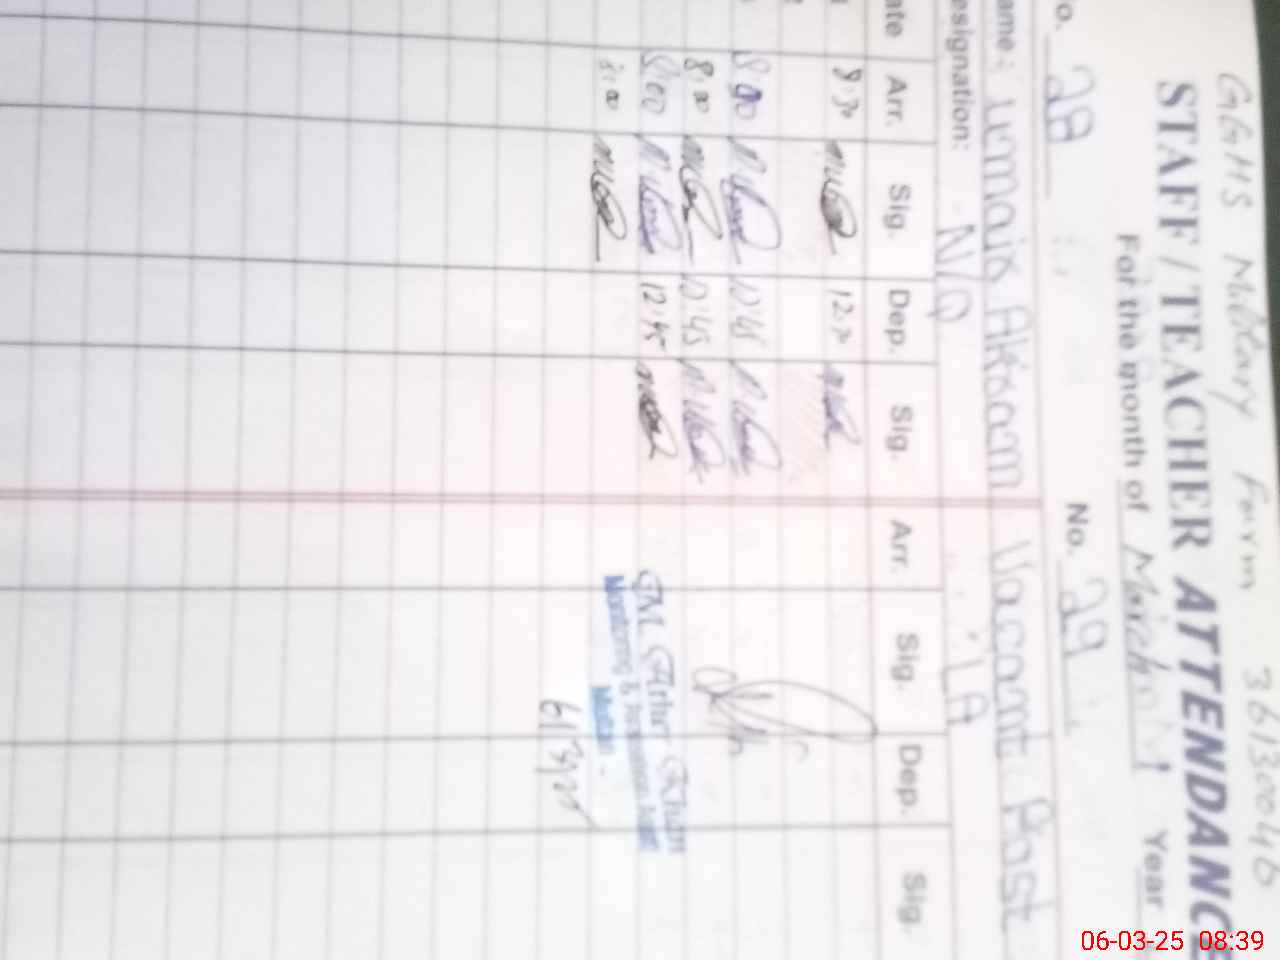 GGHS Military Farm 36130046
STAFF / TEACHER ATTENDANCE
For the month of March Year
No. 28 No. 29
ame: Umair Akram Vacant Post
esignation: N/Q LA
ate Arr. Sig. Dep. Sig. Arr. Sig. Dep. Sig.
8:30 12:30
8:00 10:45
8:00 10:45
8:00 12:45
8:00
GM Athr Khan
Monitoring &
Multan
6/3/25
06-03-25 08:39